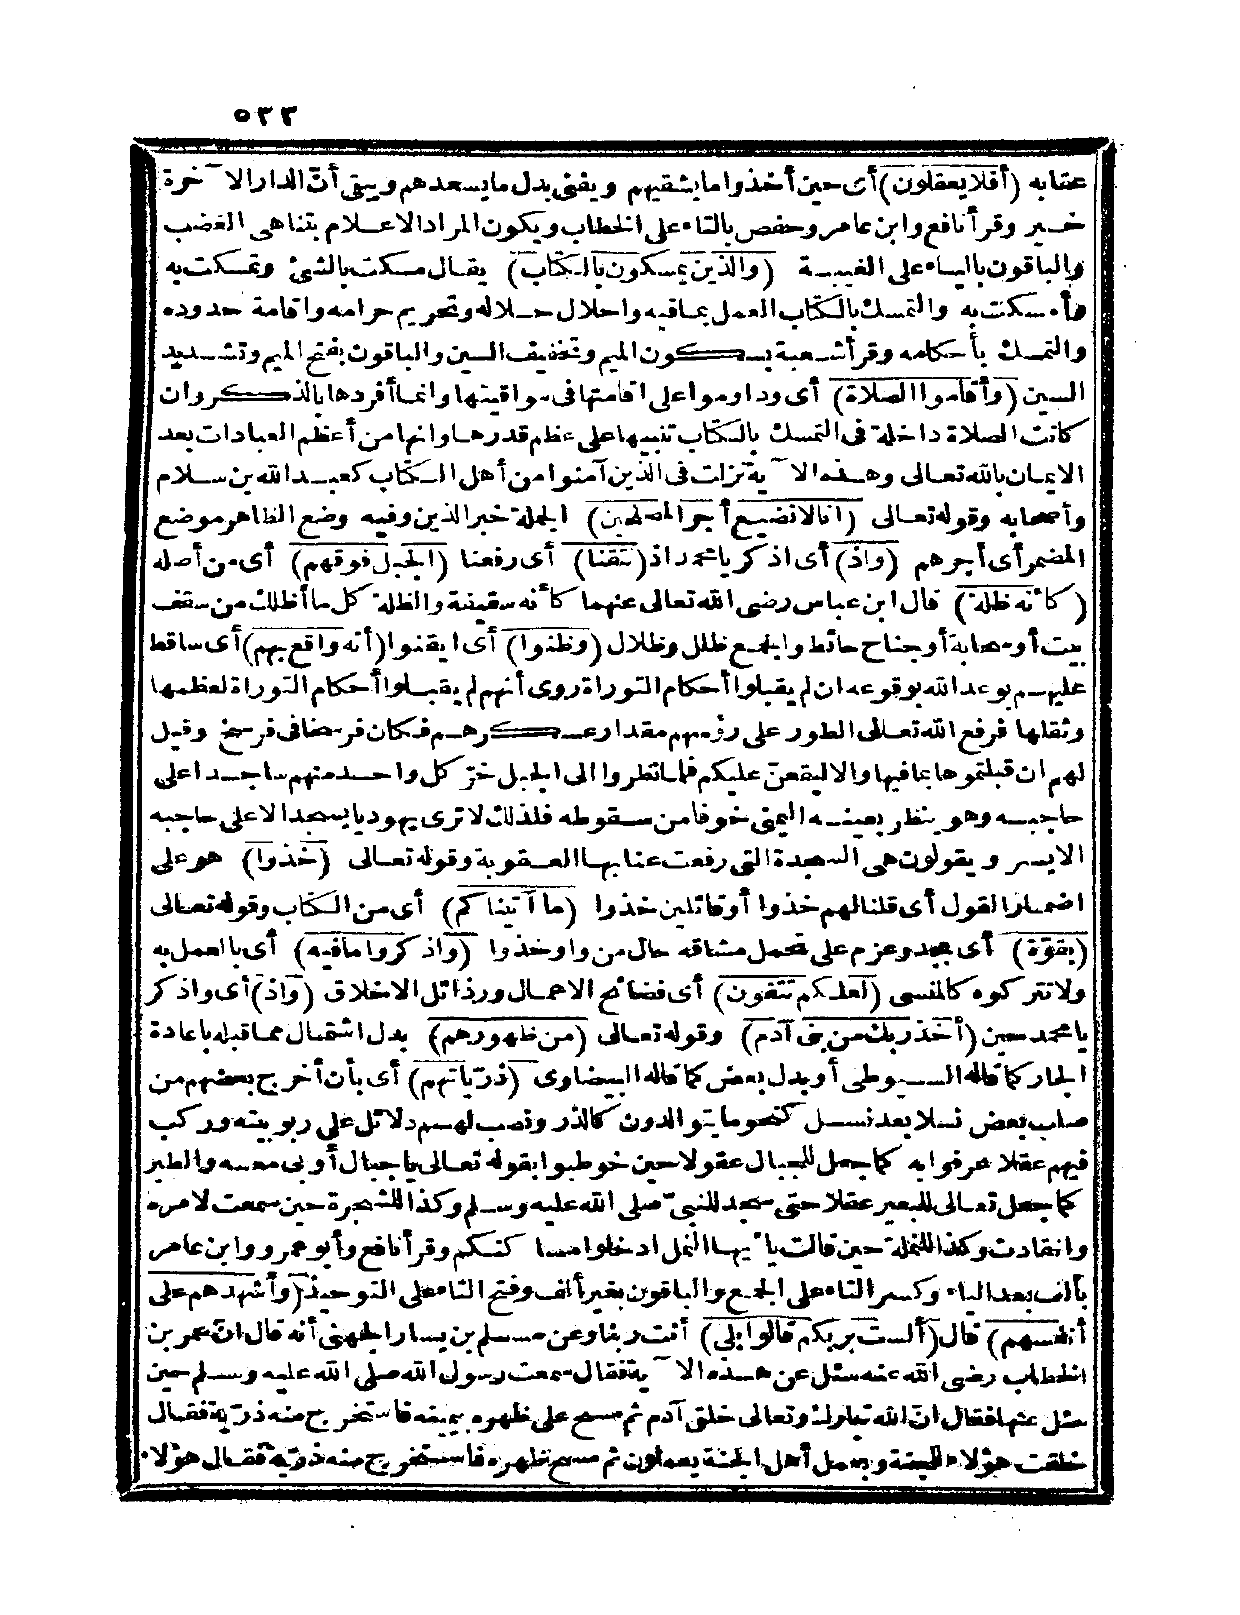 ٥٣٣
عقابه (أفلا يعقلون) أى حين أخذوا ما يشقيهم ويفنى بدل ما يسعدهم ويبقى أنّ الدار الآخرة
خير وقرأ نافع وابن عامر وحفص بالتاء على الخطاب ويكون المراد الاعلام بتناهى الغضب
والباقون بالياء على الغيبة (والذين يمسكون بالكتاب) يقال مسكت بالشئ وتمسكت به
وأمسكت به والتمسك بالكتاب العمل بما فيه واحلال حلاله وتحريم حرامه واقامة حدوده
والتمسك بأحكامه وقرأ شعبة بسكون الميم وتخفيف السين والباقون بفتح الميم وتشديد
السين (وأقاموا الصلاة) أى وداوموا على اقامتها فى مواقيتها وانما أفردها بالذكر وان
كانت الصلاة داخلة فى التمسك بالكتاب تنبيها على عظم قدرها وانها من أعظم العبادات بعد
الايمان بالله تعالى وهذه الآية نزلت فى الذين آمنوا من أهل الكتاب كعبد الله بن سلام
وأصحابه وقوله تعالى (انا لا نضيع أجر المصلحين) الجملة خبر الذين وفيه وضع الظاهر موضع
المضمر أى أجرهم (واذ) أى اذكر يا محمد اذ (نتقنا) أى رفعنا (الجبل فوقهم) أى من أصله
(كأنه ظلة) قال ابن عباس رضى الله تعالى عنهما كأنه سقيفة والظلة كل ما أظلك من سقف
بيت أو سحابة أو جناح حائط والجمع ظلل وظلال (وظنوا) أى ايقنوا (أنه واقع بهم) أى ساقط
عليهم بوعد الله بوقوعه ان لم يقبلوا أحكام التوراة روى أنهم لم يقبلوا أحكام التوراة لعظمها
وثقلها فرفع الله تعالى الطور على رؤسهم مقدار عسكرهم فكان فرسخا فى فرسخ وقيل
لهم ان قبلتموها بما فيها والا ليقعنّ عليكم فلما نظروا الى الجبل خرّ كل واحد منهم ساجدا على
حاجبه وهو ينظر بعينه اليمنى خوفا من سقوطه فلذلك لا ترى يهوديا يسجد الا على حاجبه
الايسر ويقولون هى السجدة التى رفعت عنا بها العقوبة وقوله تعالى (خذوا) هو على
اضمار القول أى قلنا لهم خذوا أو قائلين خذوا (ما آتيناكم) أى من الكتاب وقوله تعالى
(بقوّة) أى بجد وعزم على تحمل مشاقه حال من واو خذوا (واذكروا ما فيه) أى بالعمل به
ولا تتركوه كالمنسى (لعلكم تتقون) أى فضائح الاعمال ورذائل الاخلاق (واذ) أى واذكر
يا محمد حين (أخذ ربك من بنى آدم) وقوله تعالى (من ظهورهم) بدل اشتمال مما قبله باعادة
الجار كما قاله السيوطى أو بدل بعض كما قاله البيضاوى (ذرّياتهم) أى بأن أخرج بعضهم من
صلب بعض نسلا بعد نسل كنحو ما يتوالدون كالذر ونصب لهم دلائل على ربوبيته وركب
فيهم عقلا عرفوا به كما جعل للجبال عقولا حين خوطبوا بقوله تعالى يا جبال أوبى معه والطير
كما جعل تعالى للبعير عقلا حتى سجد للنبىّ صلى الله عليه وسلم وكذا للشجرة حين سمعت لامره
وانقادت وكذا للنملة حين قالت يأيها النمل ادخلوا مساكنكم وقرأ نافع وأبو عمرو وابن عامر
بألف بعد الياء وكسر التاء على الجمع والباقون بغير ألف وفتح التاء على التوحيد (وأشهدهم على
أنفسهم) قال (ألست بربكم قالوا بلى) أنت ربنا وعن مسلم بن يسار الجهنى أنه قال انّ عمر بن
الخطاب رضى الله عنه سئل عن هذه الآية فقال سمعت رسول الله صلى الله عليه وسلم حين
سئل عنها فقال انّ الله تبارك وتعالى خلق آدم ثم مسح على ظهره بيمينه فاستخرج منه ذرّية فقال
خلقت هؤلاء للجنة وبعمل أهل الجنة يعملون ثم مسح ظهره فاستخرج منه ذرّية فقال هؤلاء